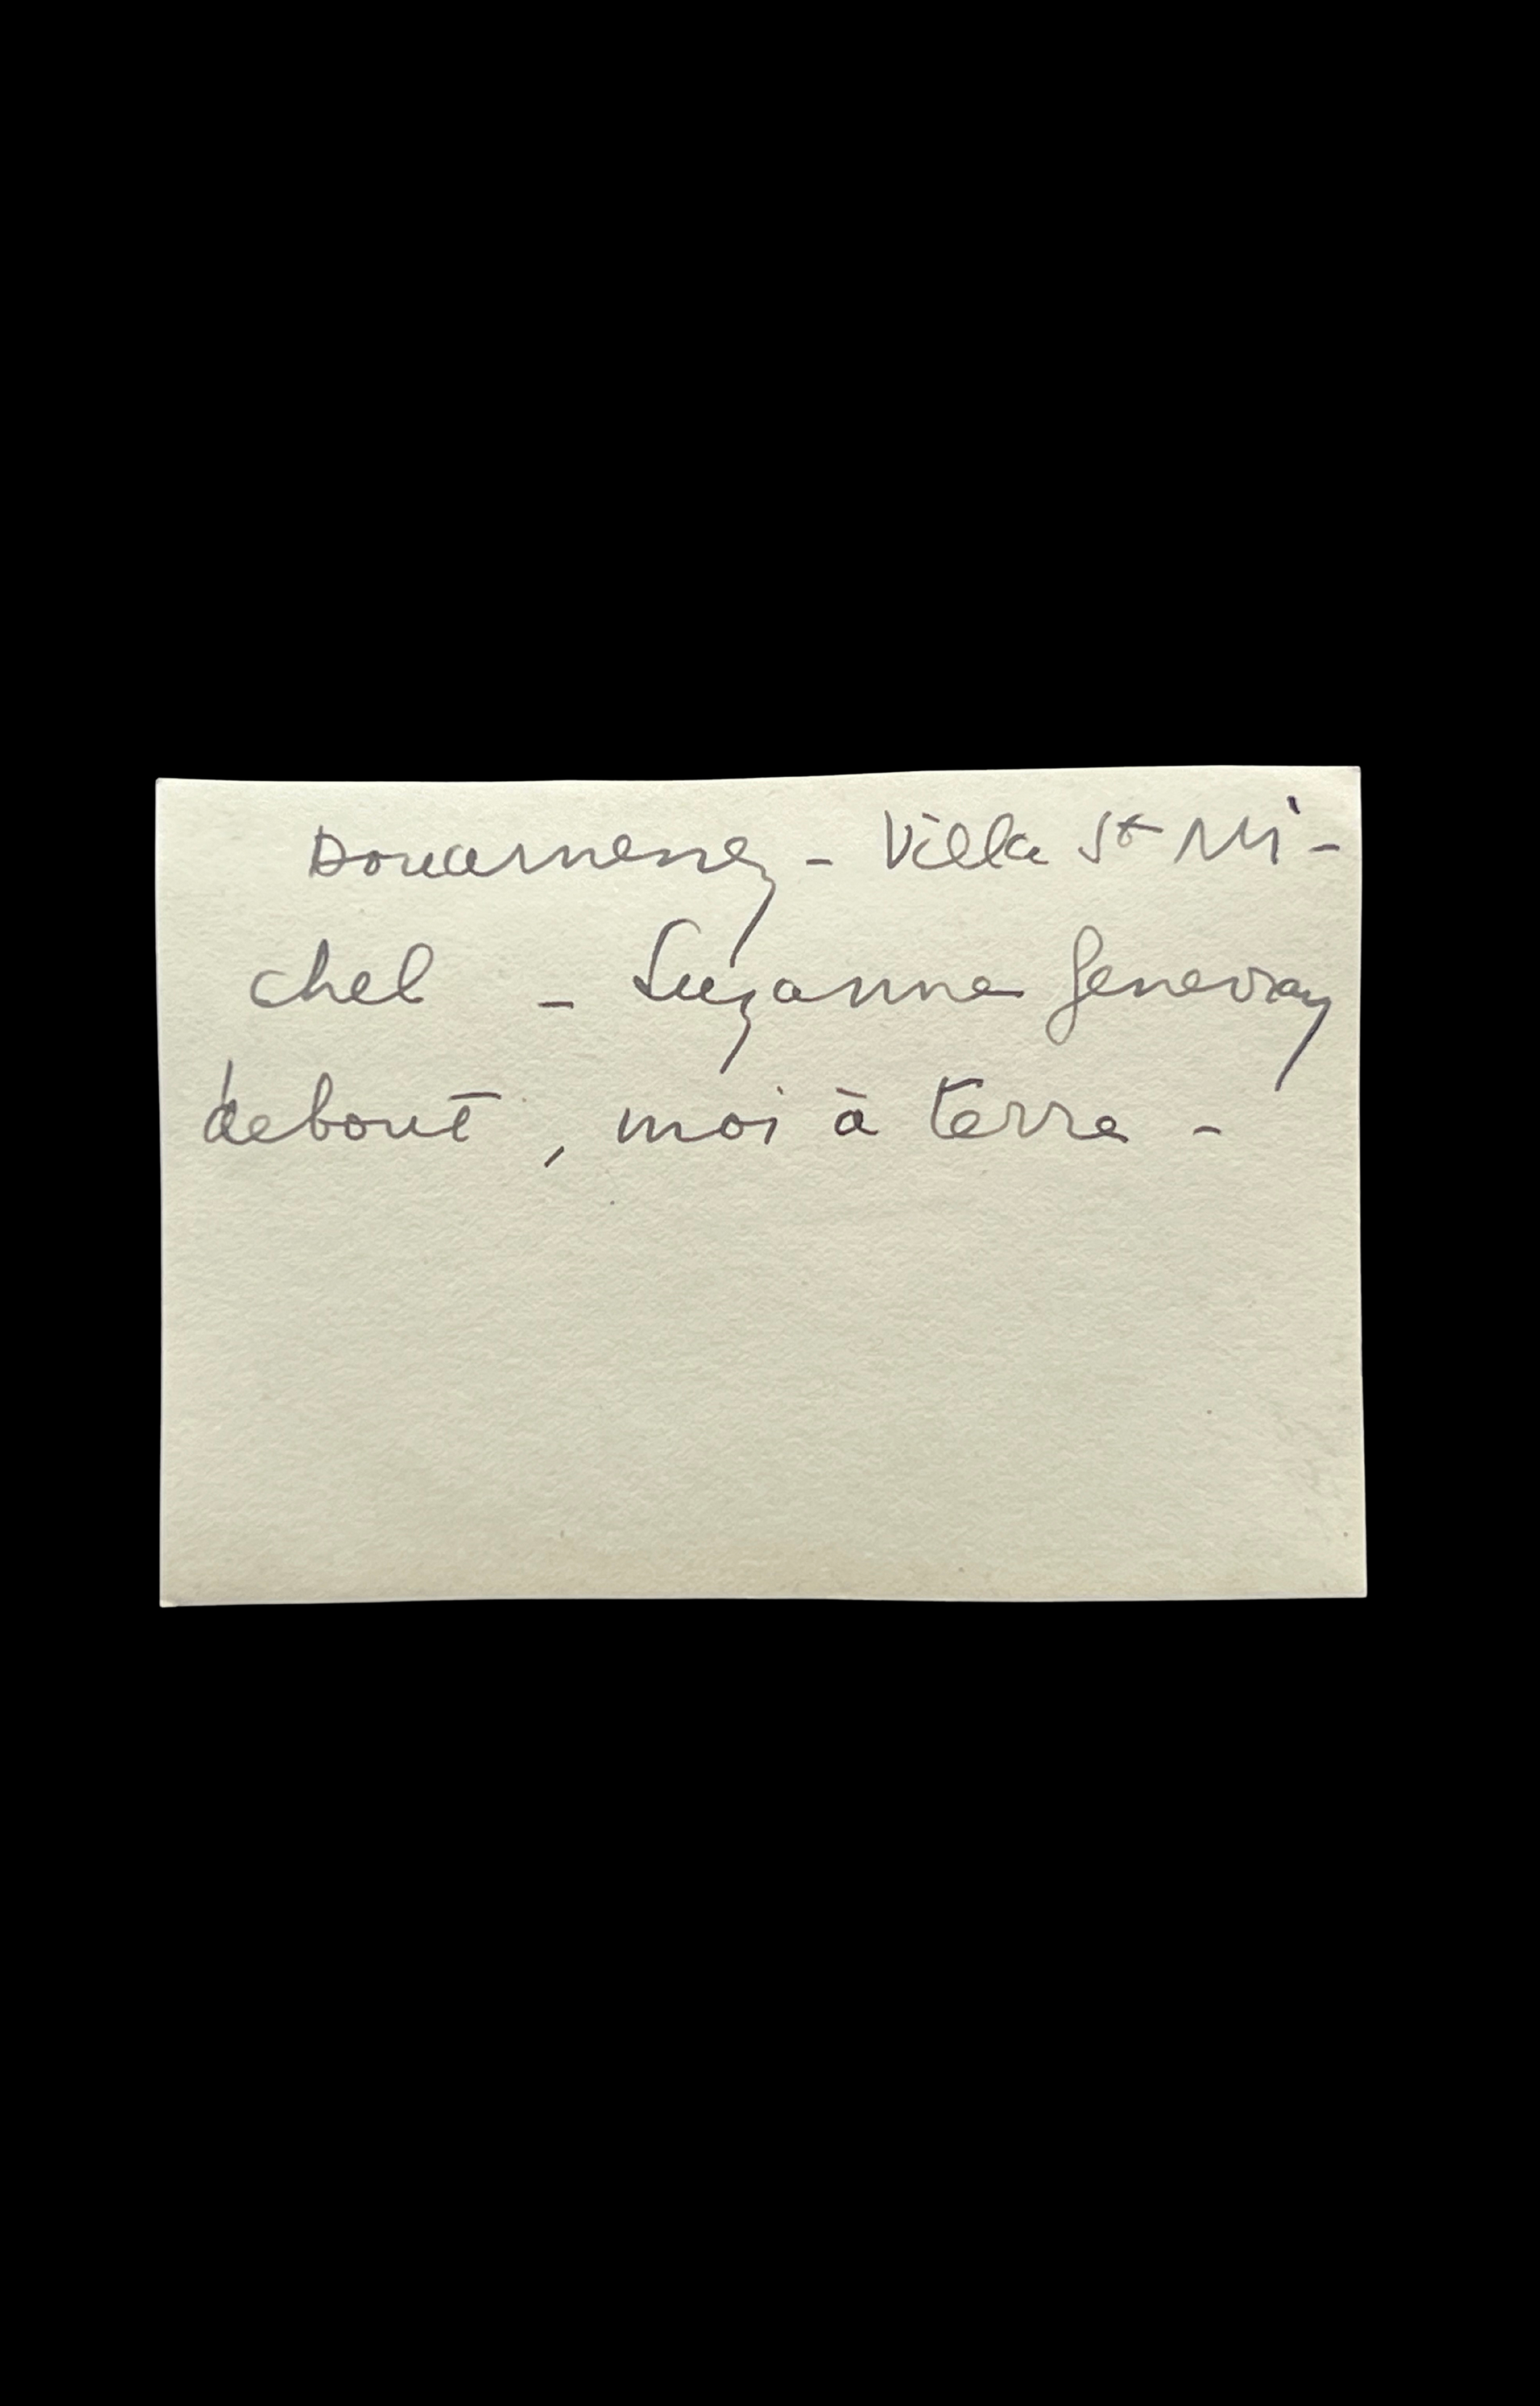 Douarnenez - Villa St Mi-
chel - Suzanne Genevray
debout, moi à terre -